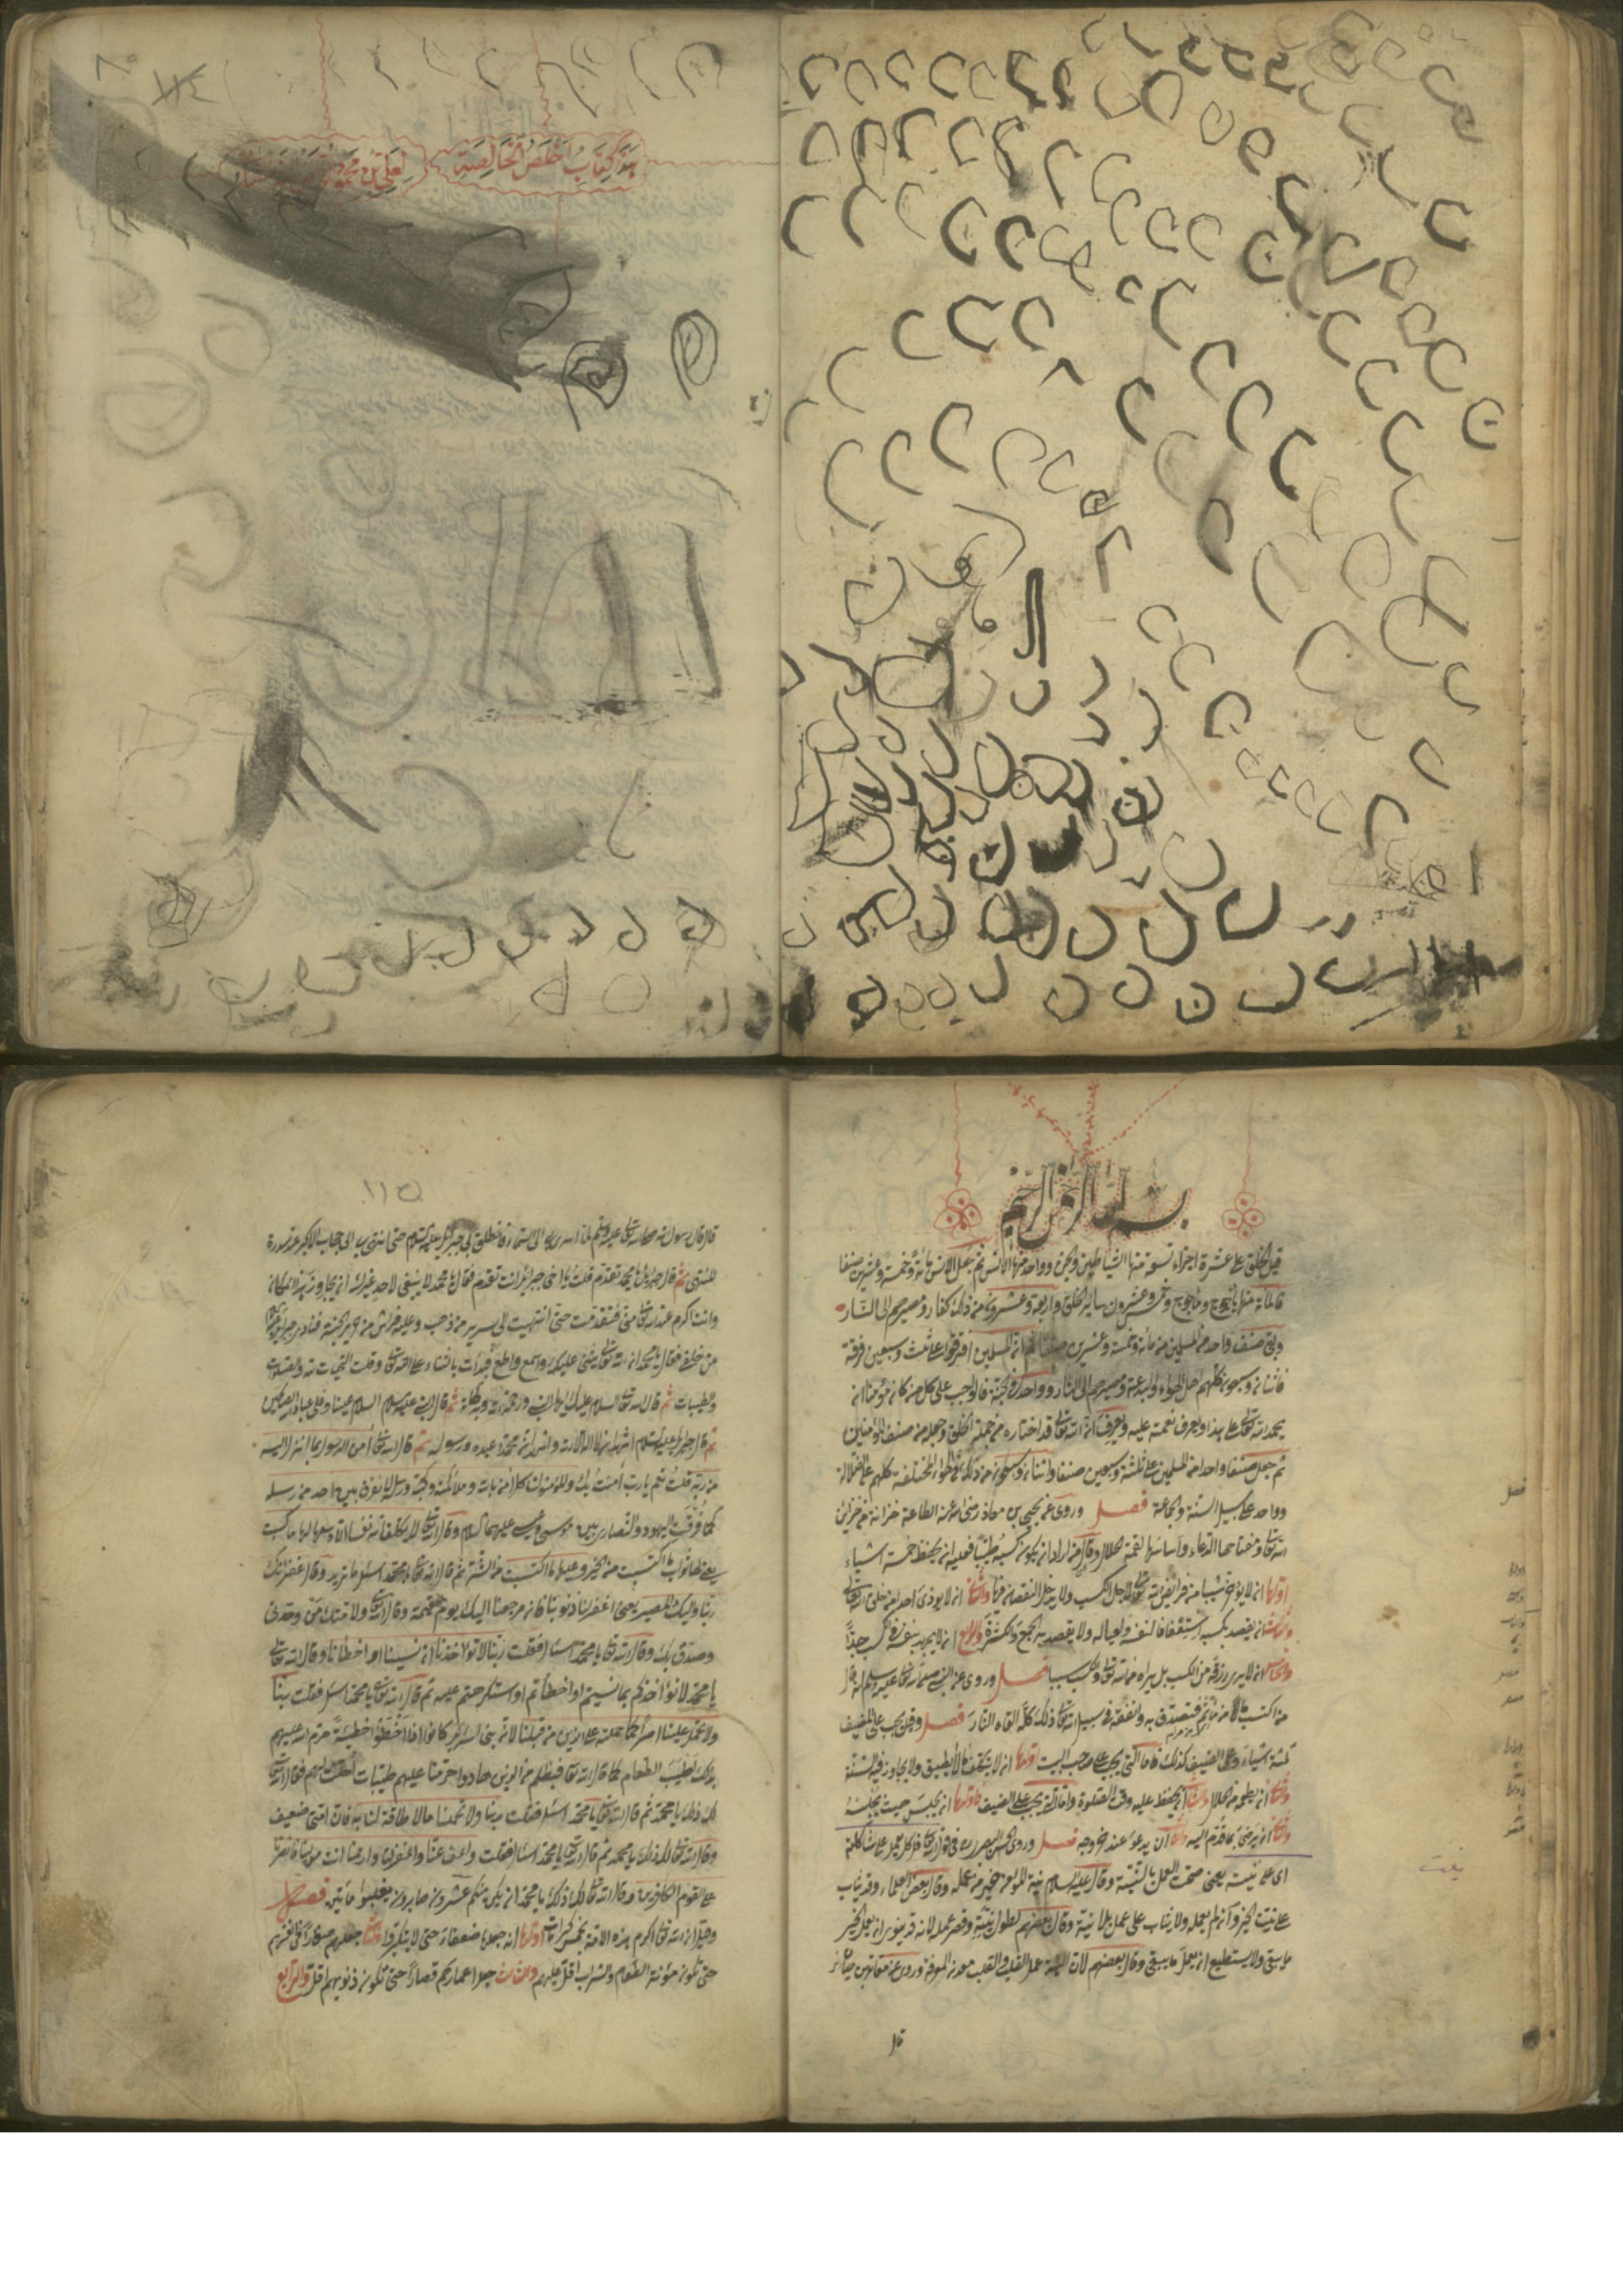 ١١٤
هذا كتاب أخلص الخالصة لعلي بن محمود
بسم الله الرحمن الرحيم
قيل الخلق على عشرة اجزاء تسعة منها الشياطين والجن وواحد منها الانس ثم جعل الانس مائة وخمسة وعشرين صنفا
فالمائة منها يأجوج ومأجوج وخمس وعشرون ساير الخلق واربعة وعشرون من ذلك كفار ومصيرهم الى النار
وبقى صنف واحد من المسلمين من مائة وخمسة وعشرين صنفا ثم ان المسلمين افترقوا على ثلث وسبعين فرقة
فاثنان وسبعون كلهم اهل الهواء والبدعة ومصيرهم الى النار وواحدة في الجنة فالواجب على كل من كان مؤمنا ان
يحمد الله تعالى على هذا ويعرف نعمة عليه ويعرف ان الله تعالى قد اختاره من جملة الخلق وجعله من صنف المؤمنين
ثم جعل صنفا واحدا من المسلمين على ثلثة وسبعين صنفا واثنان وسبعون من ذلك في الهواء المختلفة كلهم على الضلالة
وواحد على سبيل السنة والجماعة فصل وروى عن يحيى بن معاذ رضى الله عنه الطاعة خزانة من خزائن
الله تعالى ومفتاحها الدعاء واسنانها لقمة الحلال وقال من اراد ان يكون كسبه طيبا فعليه ان يحفظ خمسة اشياء
اولها ان لا يؤخر شيئا من فرائض الله تعالى لاجل الكسب ولا يدخل النقصان فيها والثانى ان لا يوذى احدا من خلق الله تعالى
والثالث ان يقصد بكسبه استعفافا لنفسه ولعياله ولا يقصد به الجمع والكثرة والرابع ان لا يجهد نفسه في الكسب جدا
والخامس ان لا يرى رزقه من الكسب بل يراه من الله تعالى والكسب سببا فصل وروى عن النبى صلى الله تعالى عليه وسلم انه قال
من اكتسب مالا من مأثم فتصدق به وانفقه في سبيل الله تعالى ذلك كله القاه النار فصل وقيل يجب على المضيف
ثلثة اشياء وعلى الضيف كذلك فاما التى يجب على صاحب البيت اولها ان لا يتكلف مالا يطيق ولا يجاوز فيه السنة
والثانى ان يطعمه من الحلال والثالث ان يحفظ عليه وقت الصلوة واما التى يجب على الضيف فاولها ان يجلس حيث يجلسه
والثانى ان يرضى بما قدم اليه والثالث ان يدعو عند خروجه فصل وروى الحسن البصرى في قوله تعالى قل كل يعمل على شاكلته
اى على نيته يعنى صحت العمل بالنية وقال عليه السلام نية المؤمن خير من عمله وقال بعض العلماء وقد يثاب
على نيت الخير وان لم يعمله ولا يثاب على عمل بلا نية وقال بعضهم لطول نيته وقصر عمله لانه قد ينوى ان يعمل الخير
ما بقى ولا يستطيع ان يعمل ما يبقى وقال بعضهم لان النية عمل القلب والقلب معدن المعرفة وروى عن مقاتل بن حيان
قال
١١٥
قال قال رسول الله صلى الله تعالى عليه وسلم لما اسرى بى الى السماء فانطلق بى جبرئيل عليه السلام حتى انتهى بى الى حجاب الاكبر عند سدرة
المنتهى ثم قال جبرئيل يا محمد تقدم قلت يا اخى جبرئيل انت تقدم فقال يا محمد لا ينبغى لاحد غيرك ان يجاوز هذا المكان
وانت اكرم عند الله تعالى منى فتقدمت حتى انتهيت الى سرير من ذهب وعليه فراش من حرير الجنة فنادى جبرئيل
من خلفى فقال يا محمد ان الله تعالى يثنى عليك واسمع واطع فبدأت بالثناء على الله تعالى وقلت التحيات لله والصلوات
والطيبات ثم قال الله تعالى السلام عليك ايها النبى ورحمة الله وبركاته ثم قال النبى عليه السلام السلام علينا وعلى عباد الله الصالحين
ثم قال جبرئيل عليه السلام اشهد ان لا اله الا الله واشهد ان محمدا عبده ورسوله ثم قال الله تعالى آمن الرسول بما انزل اليه
من ربه قلت نعم يا رب آمنت بك والمؤمنون كل آمن بالله وملائكته وكتبه ورسله لا نفرق بين احد من رسله
كما فرقت اليهود والنصارى بين موسى وعيسى عليهما السلام وقال الله تعالى لا يكلف الله نفسا الا وسعها لها ما كسبت
يعنى لها ثواب ما اكتسبت من الخير وعليها ما اكتسبت من الشر ثم قال الله تعالى يا محمد اسئل ما تريد وقال غفرانك
ربنا واليك المصير يعنى اغفر لنا ذنوبنا فان مرجعنا اليك يوم القيمة وقال الله تعالى ولامتك من وحدنى
وصدق بك وقال الله تعالى يا محمد اسئل فقلت ربنا لا تؤاخذنا ان نسينا او اخطأنا وقال الله تعالى
يا محمد لا تؤاخذكم بما نسيتم او اخطأتم او استكرهتم عليه ثم قال الله تعالى يا محمد اسئل فقلت ربنا
ولا تحمل علينا اصرا كما حملته على الذين من قبلنا لانه بنى اسرائيل كانوا اذا اخطؤا خطيئة حرم الله عليهم
بذلك لطيب الطعام كما قال الله تعالى فبظلم من الذين هادوا حرمنا عليهم طيبات احلت لهم فقال الله تعالى
لك ذلك يا محمد ثم قال الله تعالى يا محمد اسئل فقلت ربنا ولا تحملنا ما لا طاقة لنا به فان امتى ضعيف
وقال الله تعالى لك ذلك يا محمد ثم قال الله تعالى يا محمد اسئل فقلت واعف عنا واغفر لنا وارحمنا انت مولينا فانصرنا
على القوم الكافرين وقال الله تعالى لك ذلك يا محمد ان يكن منكم عشرون صابرون يغلبوا مأتين فصل
وقيل ان الله تعالى اكرم هذه الامة بخمس كرامات اولها انه جعلها ضعفاء حتى لا يتكبروا والثانى جعلهم صغارا في انفسهم
حتى تكون مؤنة الطعام والشراب اقل عليهم والثالث جعل اعمارهم قصارا حتى تكون ذنوبهم اقل والرابع